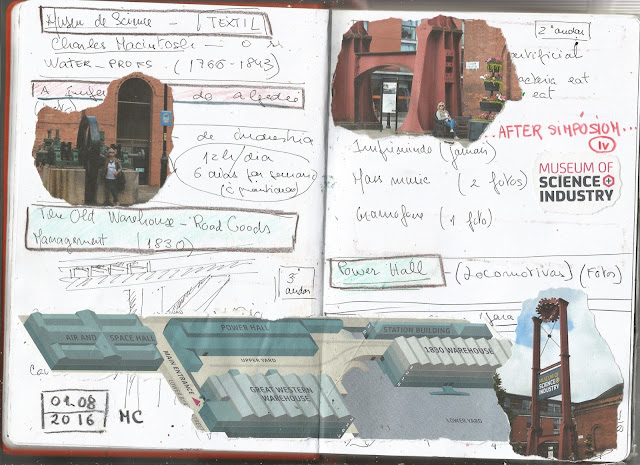 Museu de Science - TEXTIL
Charles Macintosh - o
WATER-PROOFS (1766-1843)
A do algodão
de indústria
12h/dia
6 dias por semana
The Old Warehouse - Road Goods
Management (1830)
3º andar
AIR AND SPACE HALL
POWER HALL
UPPER YARD
MAIN ENTRANCE
LOWER BYROM STREET
GREAT WESTERN
WAREHOUSE
01.08
2016
MC
2º andar
artificial
bacteria eat
eat
AFTER SIMPÓSIUM...
IV
Imprimindo (jornais)
Mass music (2 fotos)
Gramofone (1 foto)
MUSEUM OF
SCIENCE+
INDUSTRY
Power Hall (Locomotivas) (Fotos)
STATION BUILDING
1830 WAREHOUSE
LOWER YARD
MUSEUM OF
SCIENCE+
INDUSTRY